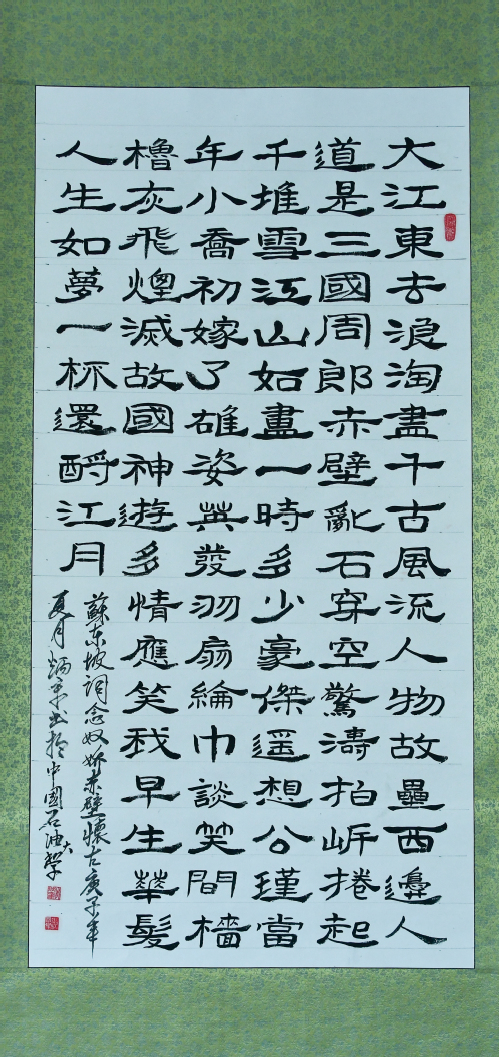 大江東去浪淘盡千古風流人物故壘西邊人
道是三國周郎赤壁亂石穿空驚濤拍岍捲起
千堆雪江山如畫一時多少豪傑遥想公瑾當
年小喬初嫁了雄姿英發羽扇綸巾談笑間檣
櫓灰飛煙滅故國神遊多情應笑我早生華髮
人生如夢一杯還酹江月
蘇东坡词念奴娇赤壁懷古庚子年
夏月炳书於中國石油大学